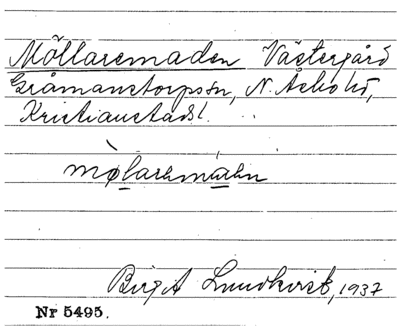 Möllaremaden Västergård
Gråmanstorpssn, N. Åsbo hd,
Kristianstads l.
Birgit Lundkvist, 1937
Nr 5495.